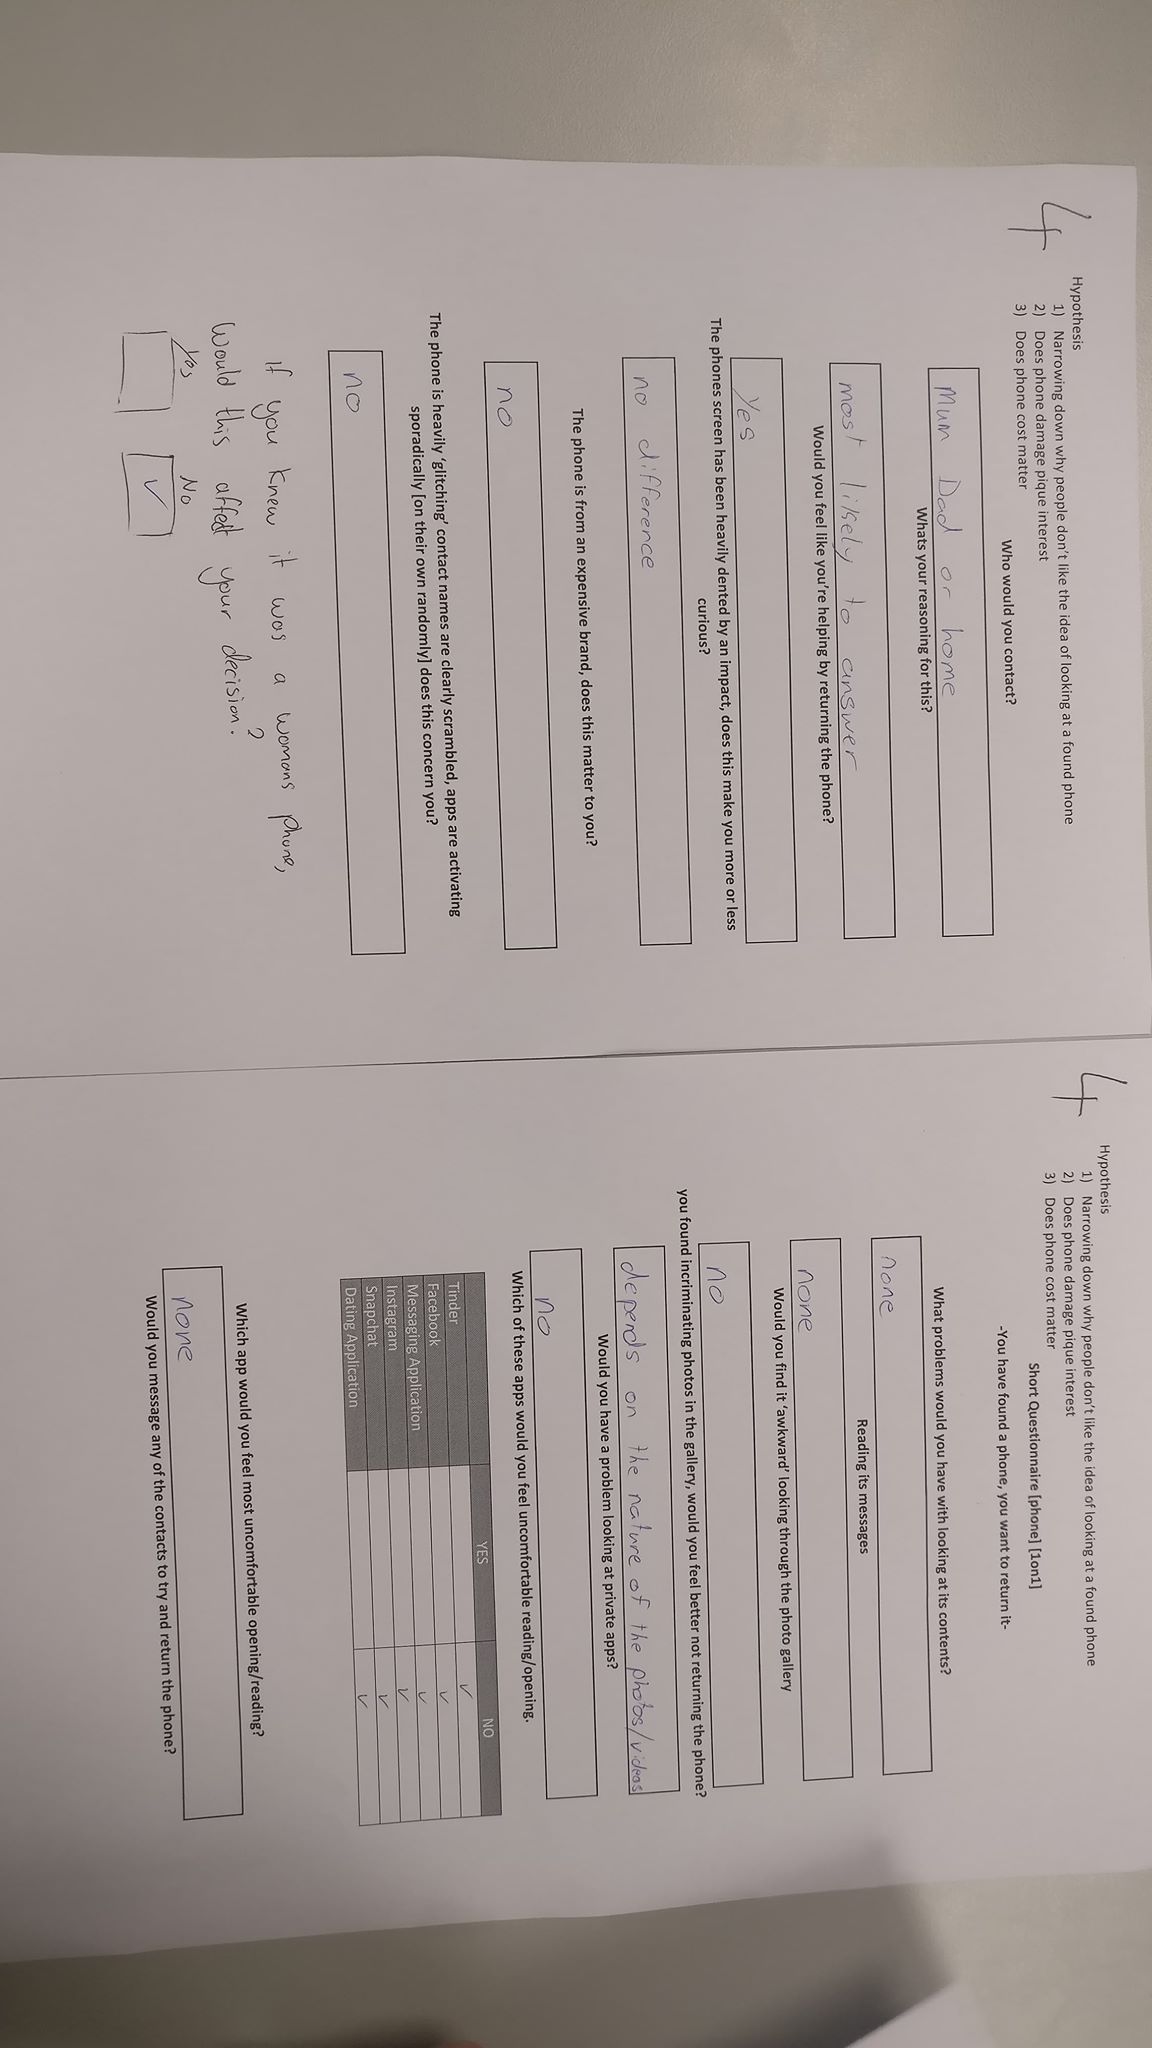 4
Hypothesis
1) Narrowing down why people don't like the idea of looking at a found phone
2) Does phone damage pique interest
3) Does phone cost matter
Who would you contact?
Mum Dad or home
Whats your reasoning for this?
most likely to answer
Would you feel like you're helping by returning the phone?
Yes
The phones screen has been heavily dented by an impact, does this make you more or less
curious?
no difference
The phone is from an expensive brand, does this matter to you?
no
The phone is heavily 'glitching' contact names are clearly scrambled, apps are activating
sporadically [on their own randomly] does this concern you?
no
If you knew it was a womans phone,
would this affect your decision?
Yes No
✓
4
Hypothesis
1) Narrowing down why people don't like the idea of looking at a found phone
2) Does phone damage pique interest
3) Does phone cost matter
Short Questionnaire [phone] [1on1]
-You have found a phone, you want to return it-
What problems would you have with looking at its contents?
none
Reading its messages
none
Would you find it 'awkward' looking through the photo gallery
no
you found incriminating photos in the gallery, would you feel better not returning the phone?
depends on the nature of the photos/videos
Would you have a problem looking at private apps?
no
Which of these apps would you feel uncomfortable reading/opening.
YES NO
Tinder ✓
Facebook ✓
Messaging Application ✓
Instagram ✓
Snapchat ✓
Dating Application ✓
Which app would you feel most uncomfortable opening/reading?
none
Would you message any of the contacts to try and return the phone?